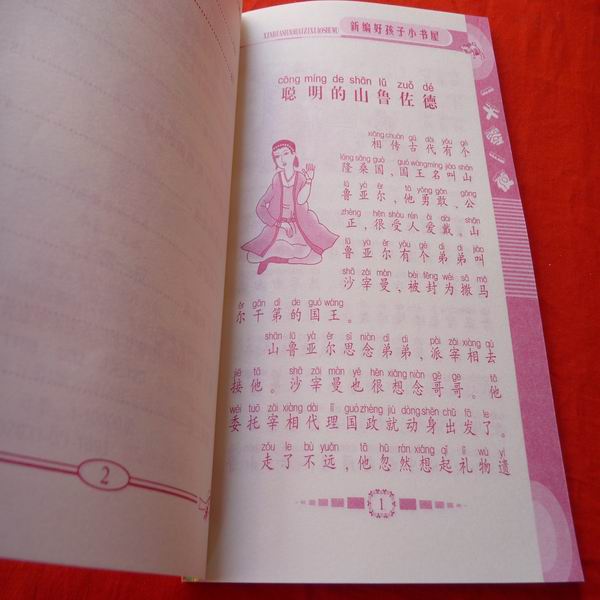 2
新编好孩子小书屋
cōng míng de shān lǔ zuǒ dé
聪明的山鲁佐德
xiāng chuán gǔ dài yǒu gè
相传古代有个
lóng sāng guó guó wáng míng jiào shān
隆桑国，国王名叫山
lǔ yà ěr tā yǒng gǎn gōng
鲁亚尔，他勇敢、公
zhèng hěn shòu rén ài dài shān
正，很受人爱戴，山
lǔ yà ěr yǒu gè dì di jiào
鲁亚尔有个弟弟叫
shā zǎi màn bèi fēng wéi sā mǎ
沙宰曼，被封为撒马
ěr gān dì de guó wáng
尔干第的国王。
shān lǔ yà ěr sī niàn dì di pài zǎi xiàng qù
山鲁亚尔思念弟弟，派宰相去
jiē tā shā zǎi màn yě hěn xiǎng niàn gē ge tā
接他。沙宰曼也很想念哥哥。他
wěi tuō zǎi xiàng dài lǐ guó zhèng jiù dòng shēn chū fā le
委托宰相代理国政就动身出发了。
zǒu le bù yuǎn tā hū rán xiǎng qǐ lǐ wù yí
走了不远，他忽然想起礼物遗
1